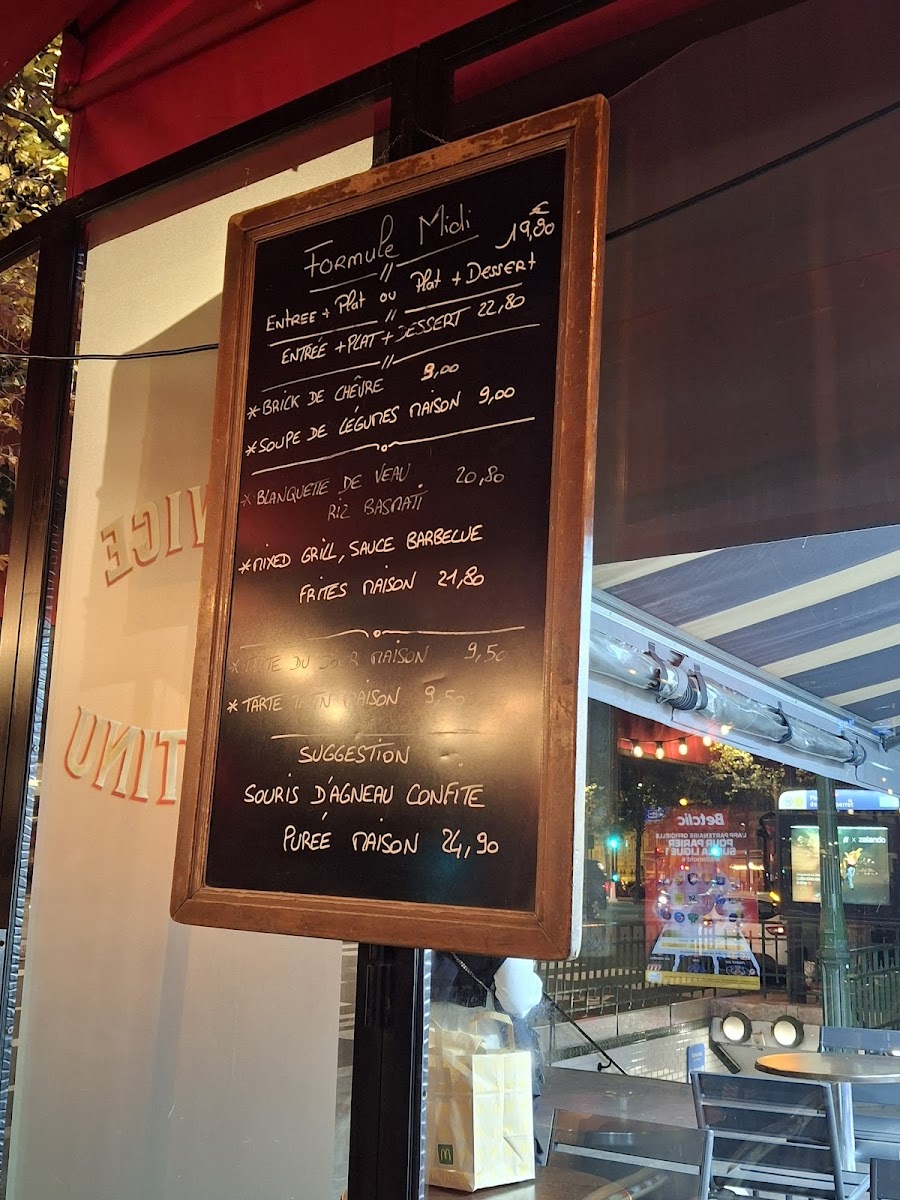 Formule Midi
19,90€
Entree + Plat ou Plat + Dessert
ENTRÉE + PLAT + DESSERT 22,80
* BRICK DE CHÈVRE 9,00
* SOUPE DE LÉGUMES MAISON 9,00
* BLANQUETTE DE VEAU 20,80
RIZ BASMATI
* MIXED GRILL, SAUCE BARBECUE
FRITES MAISON 21,80
* DU JOUR MAISON 9,50
* TARTE TATIN MAISON 9,50
SUGGESTION
SOURIS D'AGNEAU CONFITE
PURÉE MAISON 24,90
VICE
TINU
Betclic
L'APP PARTENAIRE OFFICIELLE
POUR PARIER
SUR LA LIGUE 1
McDonald's